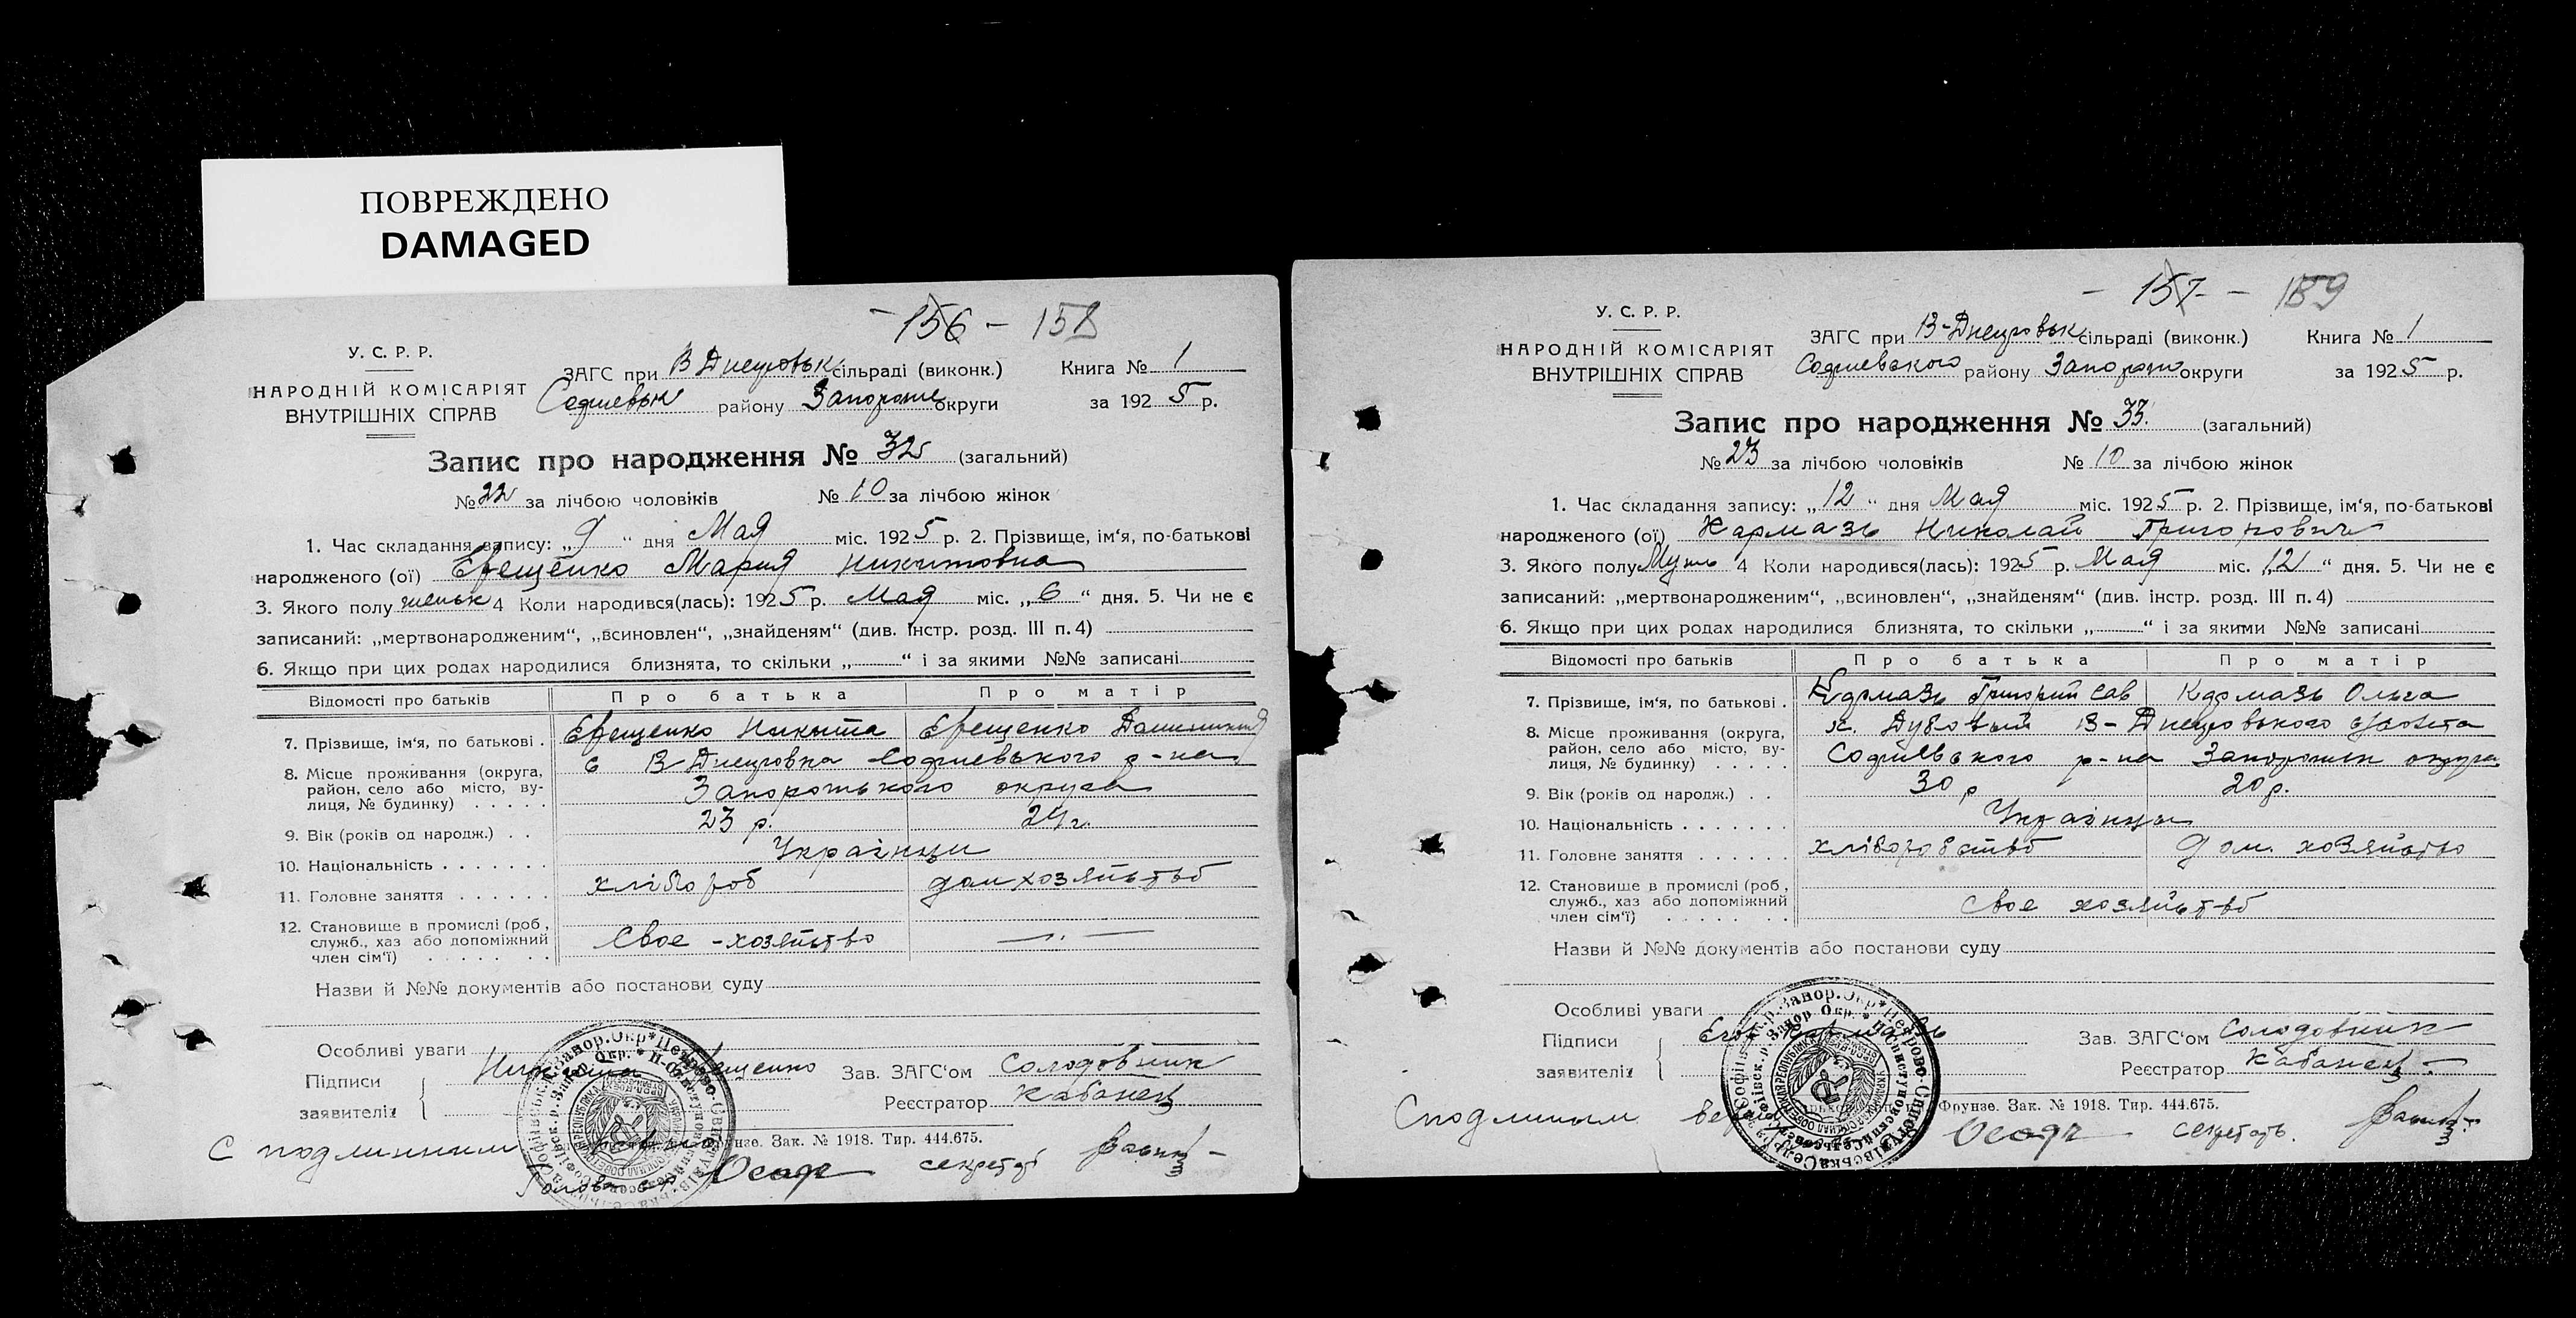 ПОВРЕЖДЕНО
DAMAGED
- 156 - 158
У. С. Р. Р.
НАРОДНІЙ КОМІСАРІЯТ
ВНУТРІШНІХ СПРАВ
ЗАГС при В Днепровськ сільраді (виконк.) Книга № 1
Софиевськ району Запорожс округи за 1925 р.
Запис про народження № 32 (загальний)
№ 22 за лічбою чоловіків № 10 за лічбою жінок
1. Час складання запису: „9“ дня Мая міс. 1925 р. 2. Прізвище, ім‘я, по-батькові
народженого (ої) Ефещенко Мария Никитовна
3. Якого полу женськ 4 Коли народився(лась): 1925 р. Мая міс. „6“ дня. 5. Чи не є
записаний: „мертвонародженим“, „всиновлен“, „знайденям“ (див. інстр. розд. III п. 4)
6. Якщо при цих родах народилися близнята, то скільки „ “ і за якими №№ записані
Відомості про батьків Про батька Про матір
7. Прізвище, ім‘я, по батькові . Ефещенко Никита Ефещенко
8. Місце проживання (округа, район, село або місто, вулиця, № будинку) с В Днепровка Софиевського р-на
Запорожського округа
9. Вік (років од народж.) . . 23 р. 24 г.
10. Національність . . . . . . . Українци
11. Головне заняття . . . . . . хлібороб домхозяйство
12. Становище в промислі (роб, служб., хаз або допоміжний член сім‘ї) Свое - хозяйство — „ —
Назви й №№ документів або постанови суду
Особливі уваги
Підписи
заявителіз
Никита Ефещенко
Зав. ЗАГС‘ом Солодовник
Реєстратор Кабанец
Фрунзе. Зак. № 1918. Тир. 444.675.
С подлинным
Голова с/р секретарь
- 157 - 159
У. С. Р. Р.
НАРОДНІЙ КОМІСАРІЯТ
ВНУТРІШНІХ СПРАВ
ЗАГС при В-Днепровськ сільраді (виконк.) Книга № 1
Софиевського району Запорож округи за 1925 р.
Запис про народження № 33. (загальний)
№ 23 за лічбою чоловіків № 10 за лічбою жінок
1. Час складання запису: „12“ дня Мая міс. 1925 р. 2. Прізвище, ім‘я, по-батькові
народженого (ої) Кармазь Николай Григорович
3. Якого полу Мужь 4 Коли народився(лась): 1925 р. Мая міс. „12“ дня. 5. Чи не є
записаний: „мертвонародженим“, „всиновлен“, „знайденям“ (див. інстр. розд. III п. 4)
6. Якщо при цих родах народилися близнята, то скільки „ “ і за якими №№ записані
Відомості про батьків Про батька Про матір
7. Прізвище, ім‘я, по батькові . Кармазь Григорий Сав Кармазь Ольга
8. Місце проживання (округа, район, село або місто, вулиця, № будинку) х. Дубовый В-Днепровького
Софиевського р-на Запорожск округа
9. Вік (років од народж.) . . 30 р 20 р.
10. Національність . . . . . . . Українци
11. Головне заняття . . . . . . хліборобство дом. хозяйство
12. Становище в промислі (роб, служб., хаз або допоміжний член сім‘ї) Свое хозяйство
Назви й №№ документів або постанови суду
Особливі уваги
Підписи
заявителіз
Зав. ЗАГС‘ом Солодовник
Реєстратор Кабанец
Фрунзе. Зак. № 1918. Тир. 444.675.
С подлиным верно
секретарь